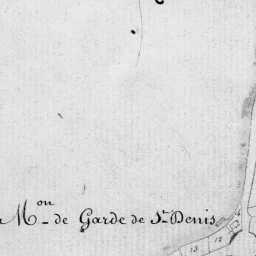 Mon de Garde de St Denis
13 12